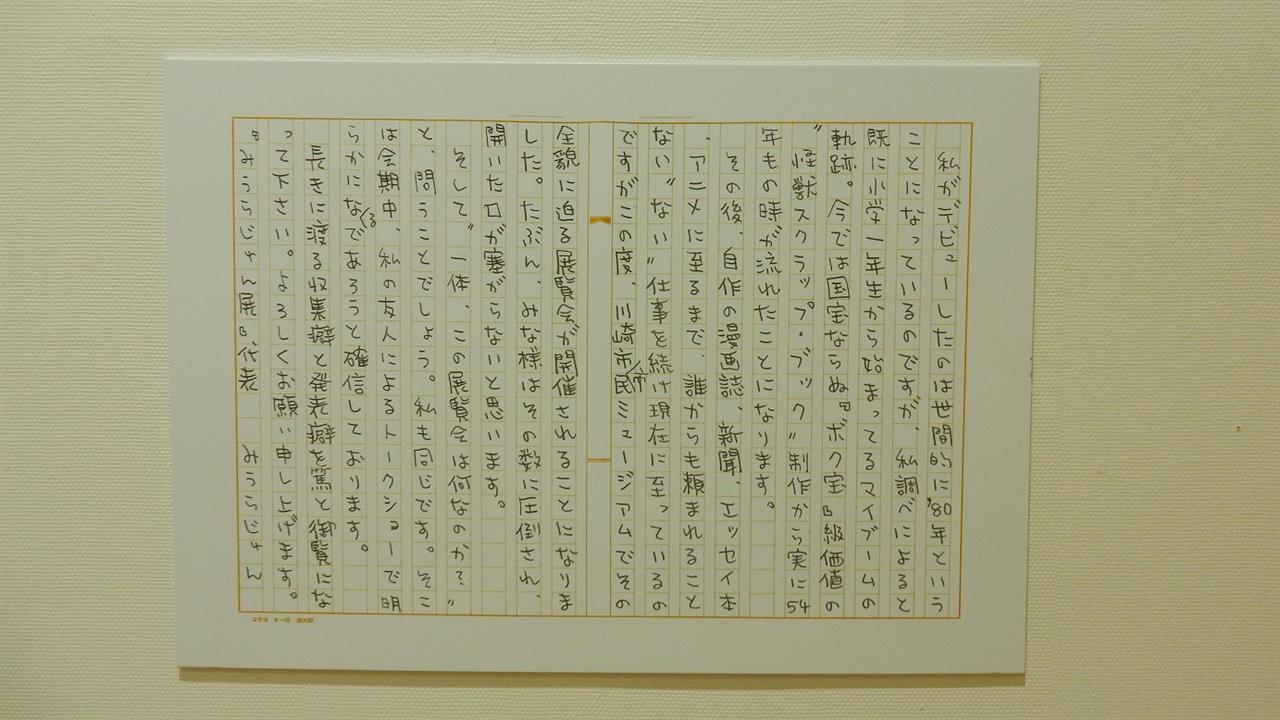 私がデビューしたのは世間的に'80年という
ことになっているのですが、私調べによると
既に小学一年生から始まってるマイブームの
軌跡。今では国宝ならぬ『ボク宝』級価値の
"怪獣スクラップ・ブック"制作から実に54
年もの時が流れたことになります。
その後、自作の漫画誌、新聞、エッセイ本
、アニメに至るまで、誰からも頼まれること
ない"ない"仕事を続け現在に至っているの
ですがこの度、川崎市市民ミュージアムでその
全貌に迫る展覧会が開催されることになりま
した。たぶん、みな様はその数に圧倒され、
開いた口が塞がらないと思います。
そして"一体、この展覧会は何なのか？"
と、問うことでしょう。私も同じです。そこ
は会期中、私の友人によるトークショーで明
らかになるであろうと確信しております。
長きに渡る収集癖と発表癖を篤と御覧にな
って下さい。よろしくお願い申し上げます。
『みうらじゅん展』代表 みうらじゅん
コクヨ ケー10 20×20